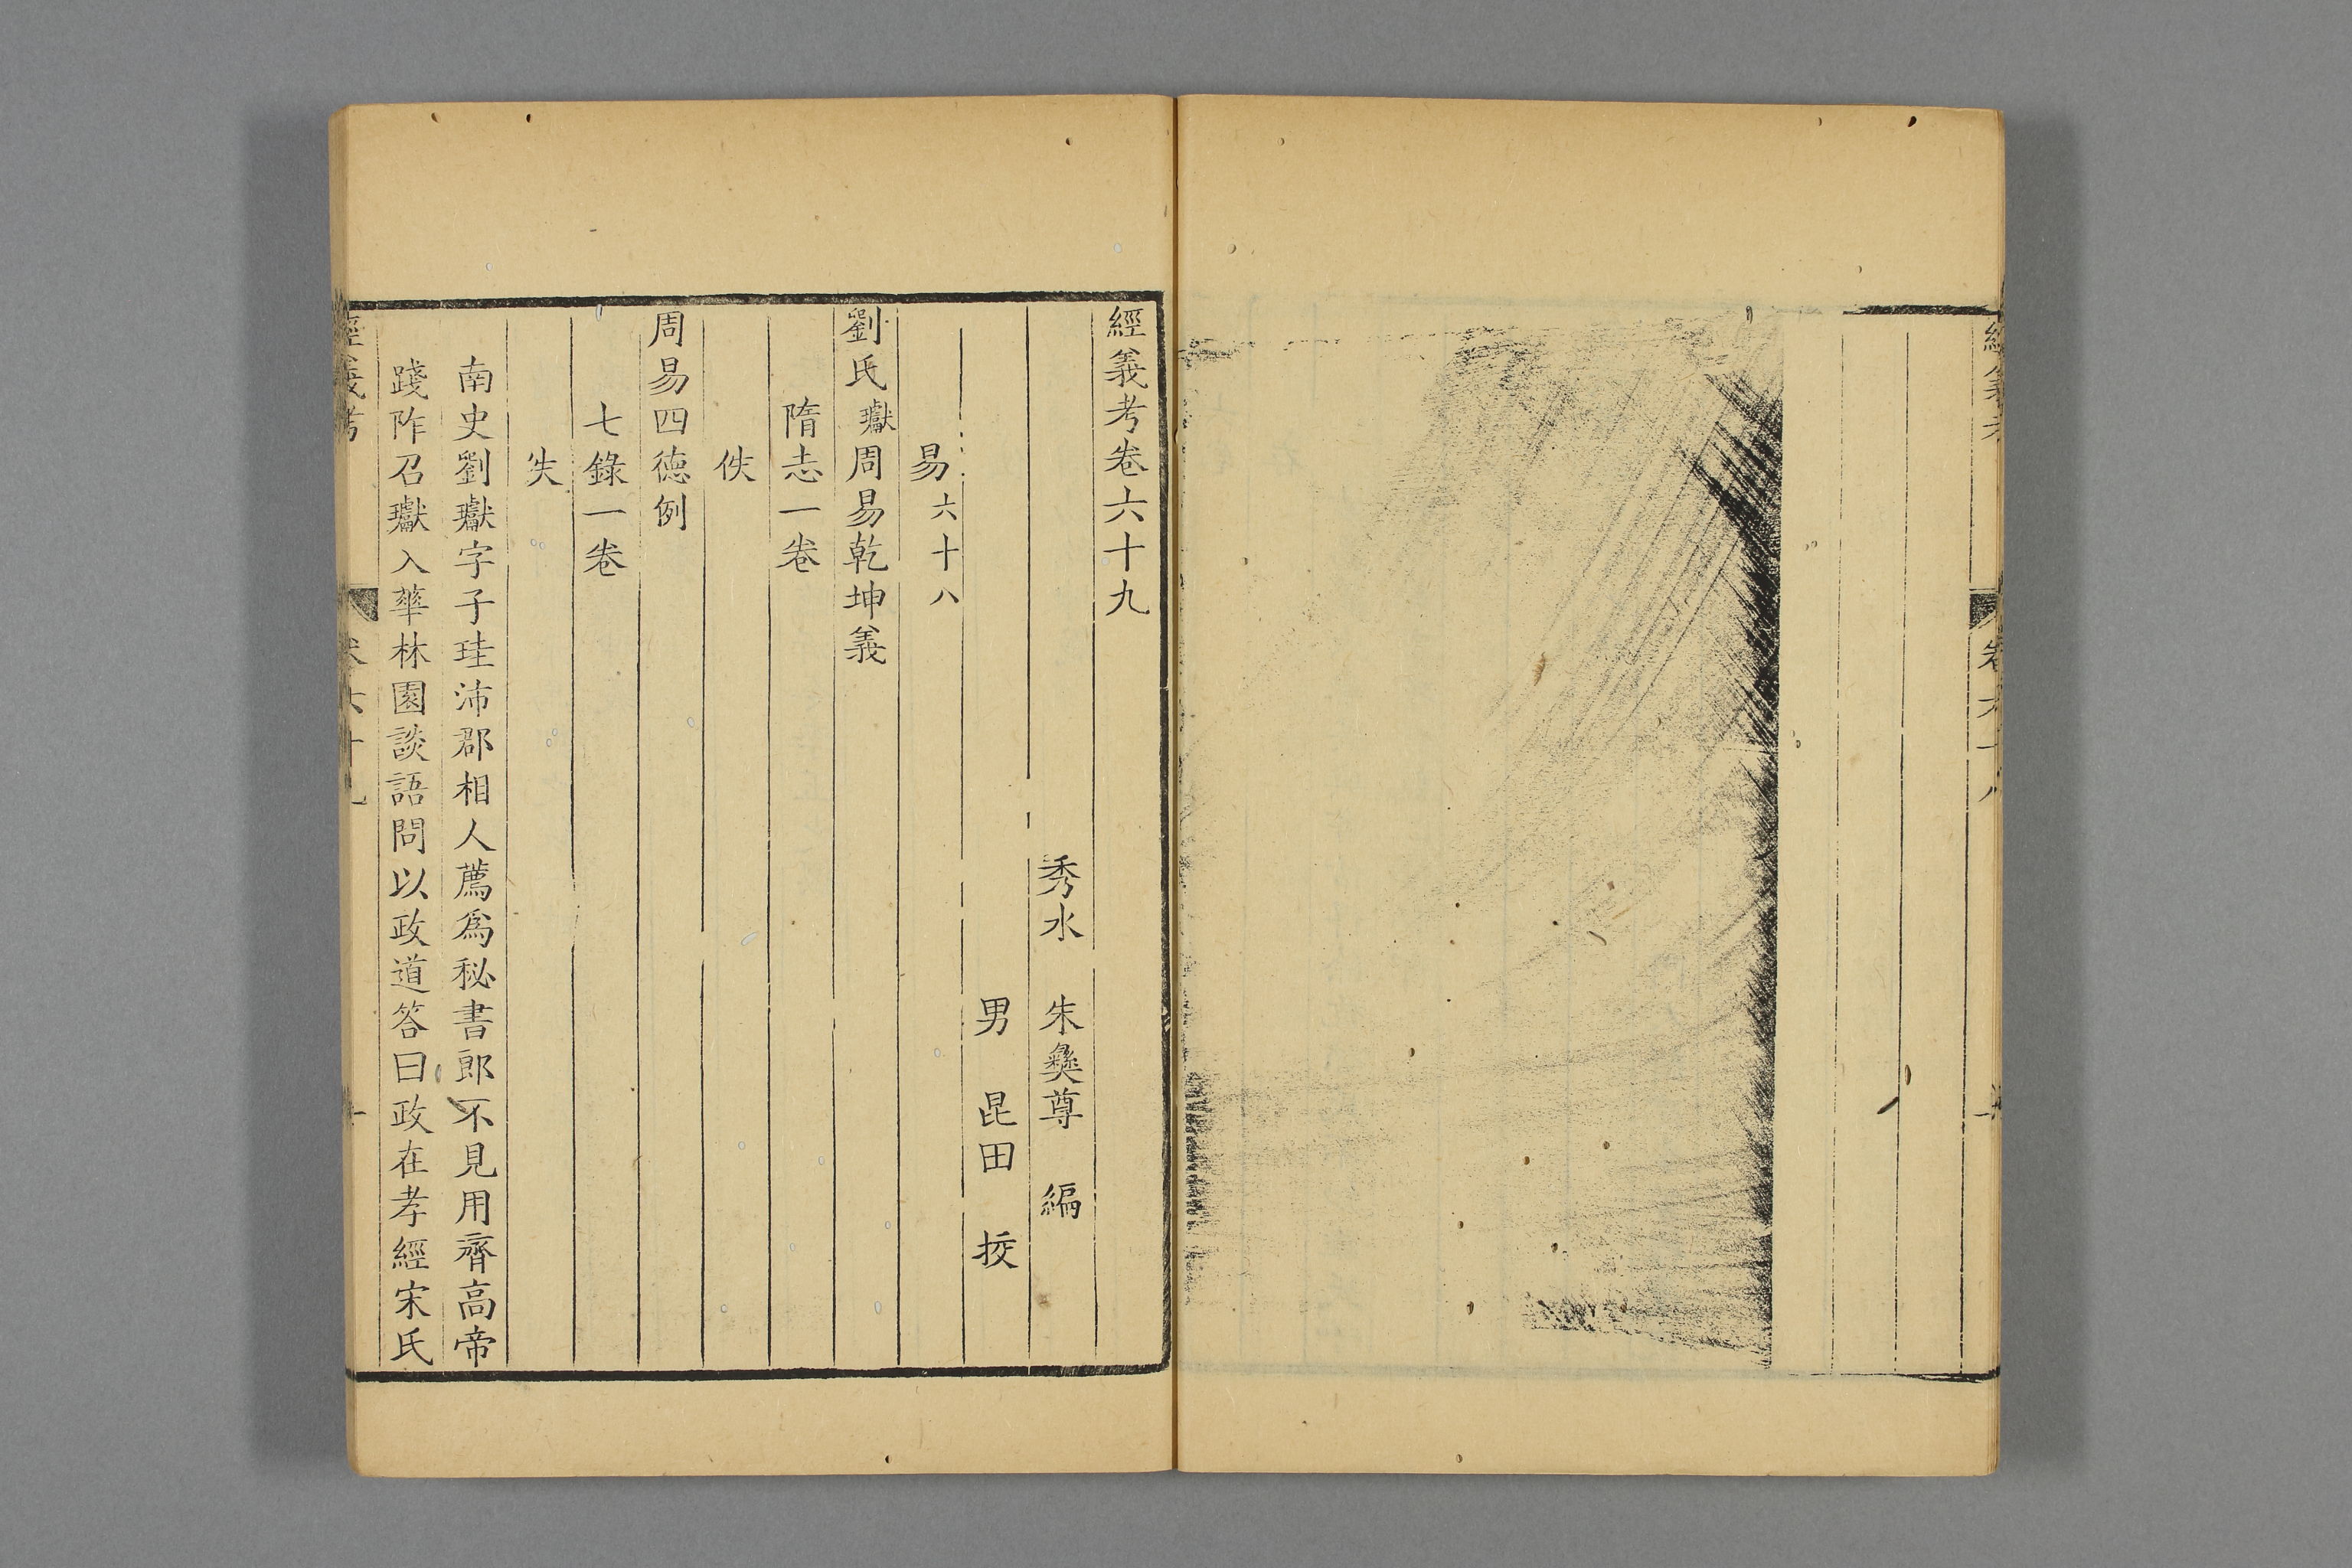 經義考卷六十九
秀水 朱彝尊 編
男 昆田 挍
易六十八
劉氏瓛周易乾坤義
隋志一卷
佚
周易四德例
七錄一卷
失
南史劉瓛字子珪沛郡相人薦爲秘書郎不見用齊高帝
踐阼召瓛入華林園談語問以政道答曰政在孝經宋氏
經義考 卷六十九 一